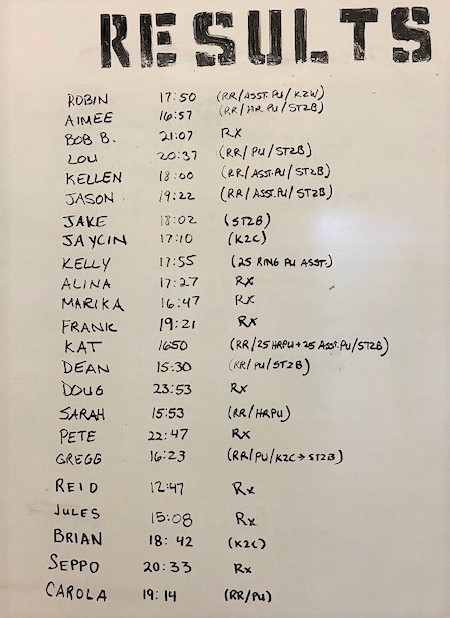 RESULTS
ROBIN 17:50 (RR/ASST.PU/K2W)
AIMEE 16:57 (RR/HR PU/ST2B)
BOB B. 21:07 Rx
LOU 20:37 (RR/PU/ST2B)
KELLEN 18:00 (RR/ASST.PU/ST2B)
JASON 19:22 (RR/ASST.PU/ST2B)
JAKE 18:02 (ST2B)
JAYCIN 17:10 (K2C)
KELLY 17:55 (25 RING PU ASST.)
ALINA 17:27 Rx
MARIKA 16:47 Rx
FRANK 19:21 Rx
KAT 1650 (RR/25 HRPU+25 ASST.PU/ST2B)
DEAN 15:30 (RR/PU/ST2B)
DOUG 23:53 Rx
SARAH 15:53 (RR/HRPU)
PETE 22:47 Rx
GREGG 16:23 (RR/PU/K2C→ST2B)
REID 12:47 Rx
JULES 15:08 Rx
BRIAN 18:42 (K2C)
SEPPO 20:33 Rx
CAROLA 19:14 (RR/PU)